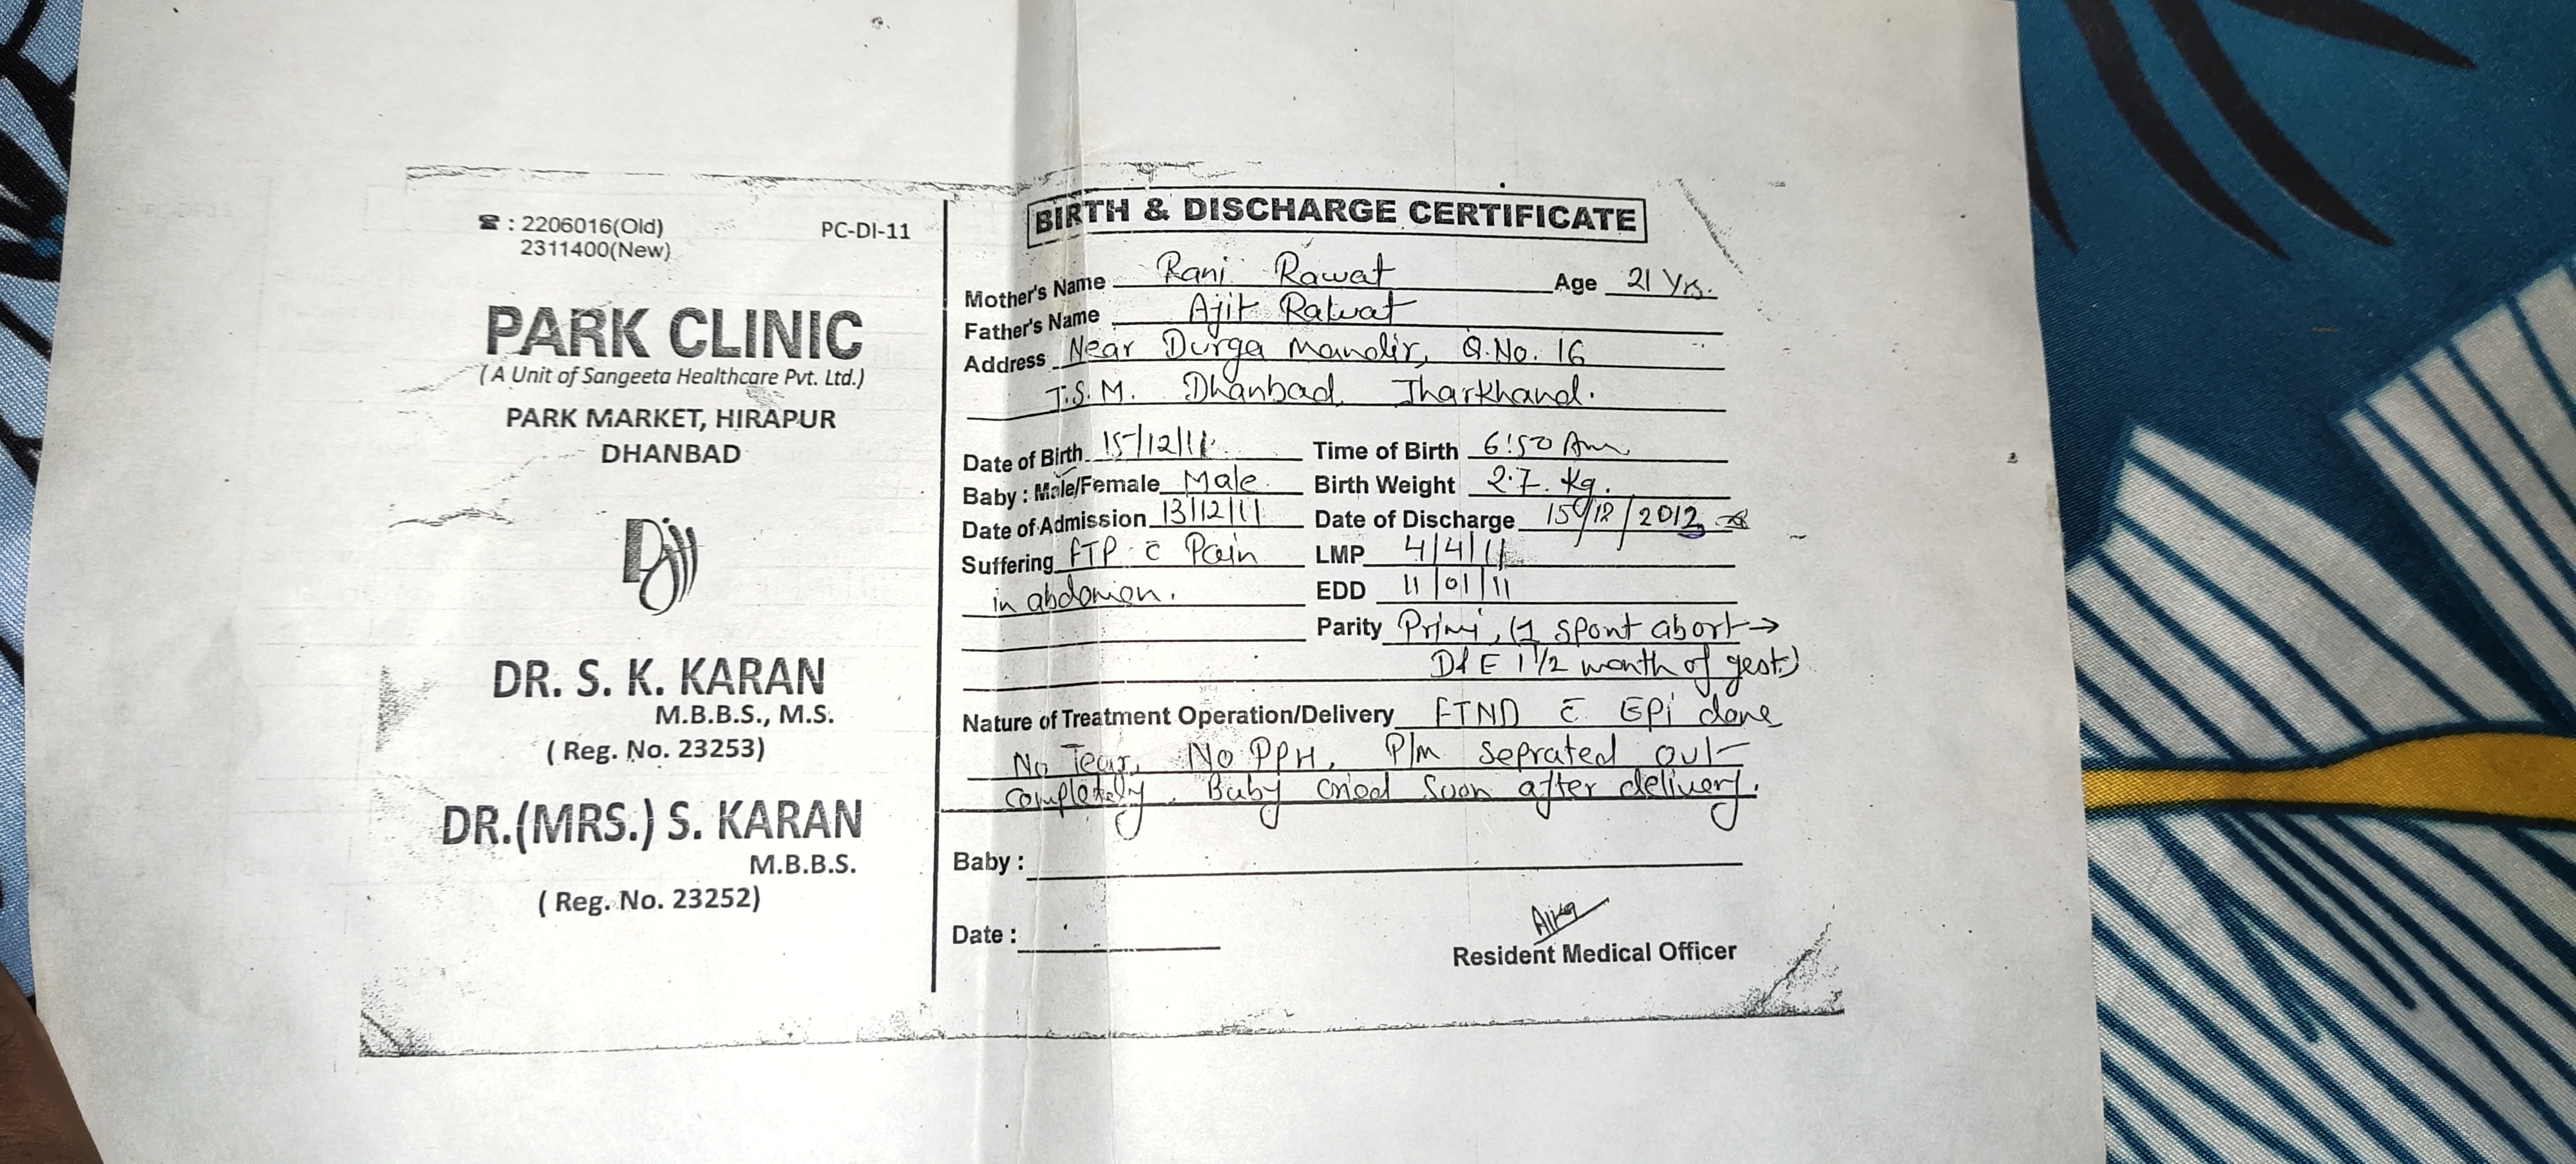 ☎ : 2206016(Old)
2311400(New)
PC-DI-11
PARK CLINIC
( A Unit of Sangeeta Healthcare Pvt. Ltd.)
PARK MARKET, HIRAPUR
DHANBAD
DR. S. K. KARAN
M.B.B.S., M.S.
( Reg. No. 23253)
DR.(MRS.) S. KARAN
M.B.B.S.
( Reg. No. 23252)
BIRTH & DISCHARGE CERTIFICATE
Mother's Name Rani Rawat Age 21 Yrs.
Father's Name Ajit Rawat
Address Near Durga Mandir, Q.No. 16
Dhanbad Jharkhand.
Date of Birth 15/12/11 Time of Birth 6:50 Am
Baby : Male/Female Male Birth Weight 2.7. Kg.
Date of Admission 13/12/11 Date of Discharge 15/12/
Suffering FTP c̄ Pain LMP 4/4/11
in abdomen. EDD 11/01/11
Parity Primi, (1 spont abort →
D&E 1 1/2 month of gest.)
Nature of Treatment Operation/Delivery FTND c̄ EPi done
No Tear, No PPH, P/m seprated out
completely. Baby cried soon after delivery.
Baby :
Date :
Resident Medical Officer